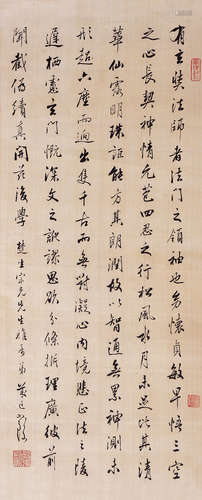 有玄奘法師者法門之領袖也幼懷貞敏早悟三空
之心長契神情先苞四忍之行松風水月未足比其清
華仙露明珠詎能方其朗潤故以智通無累神測未
形超六塵而迥出隻千古而無對凝心內境悲正法之陵
遲栖慮玄門慨深文之訛謬思欲分條析理廣彼前
聞截偽續真開茲後學 楚生宗兄先生雅